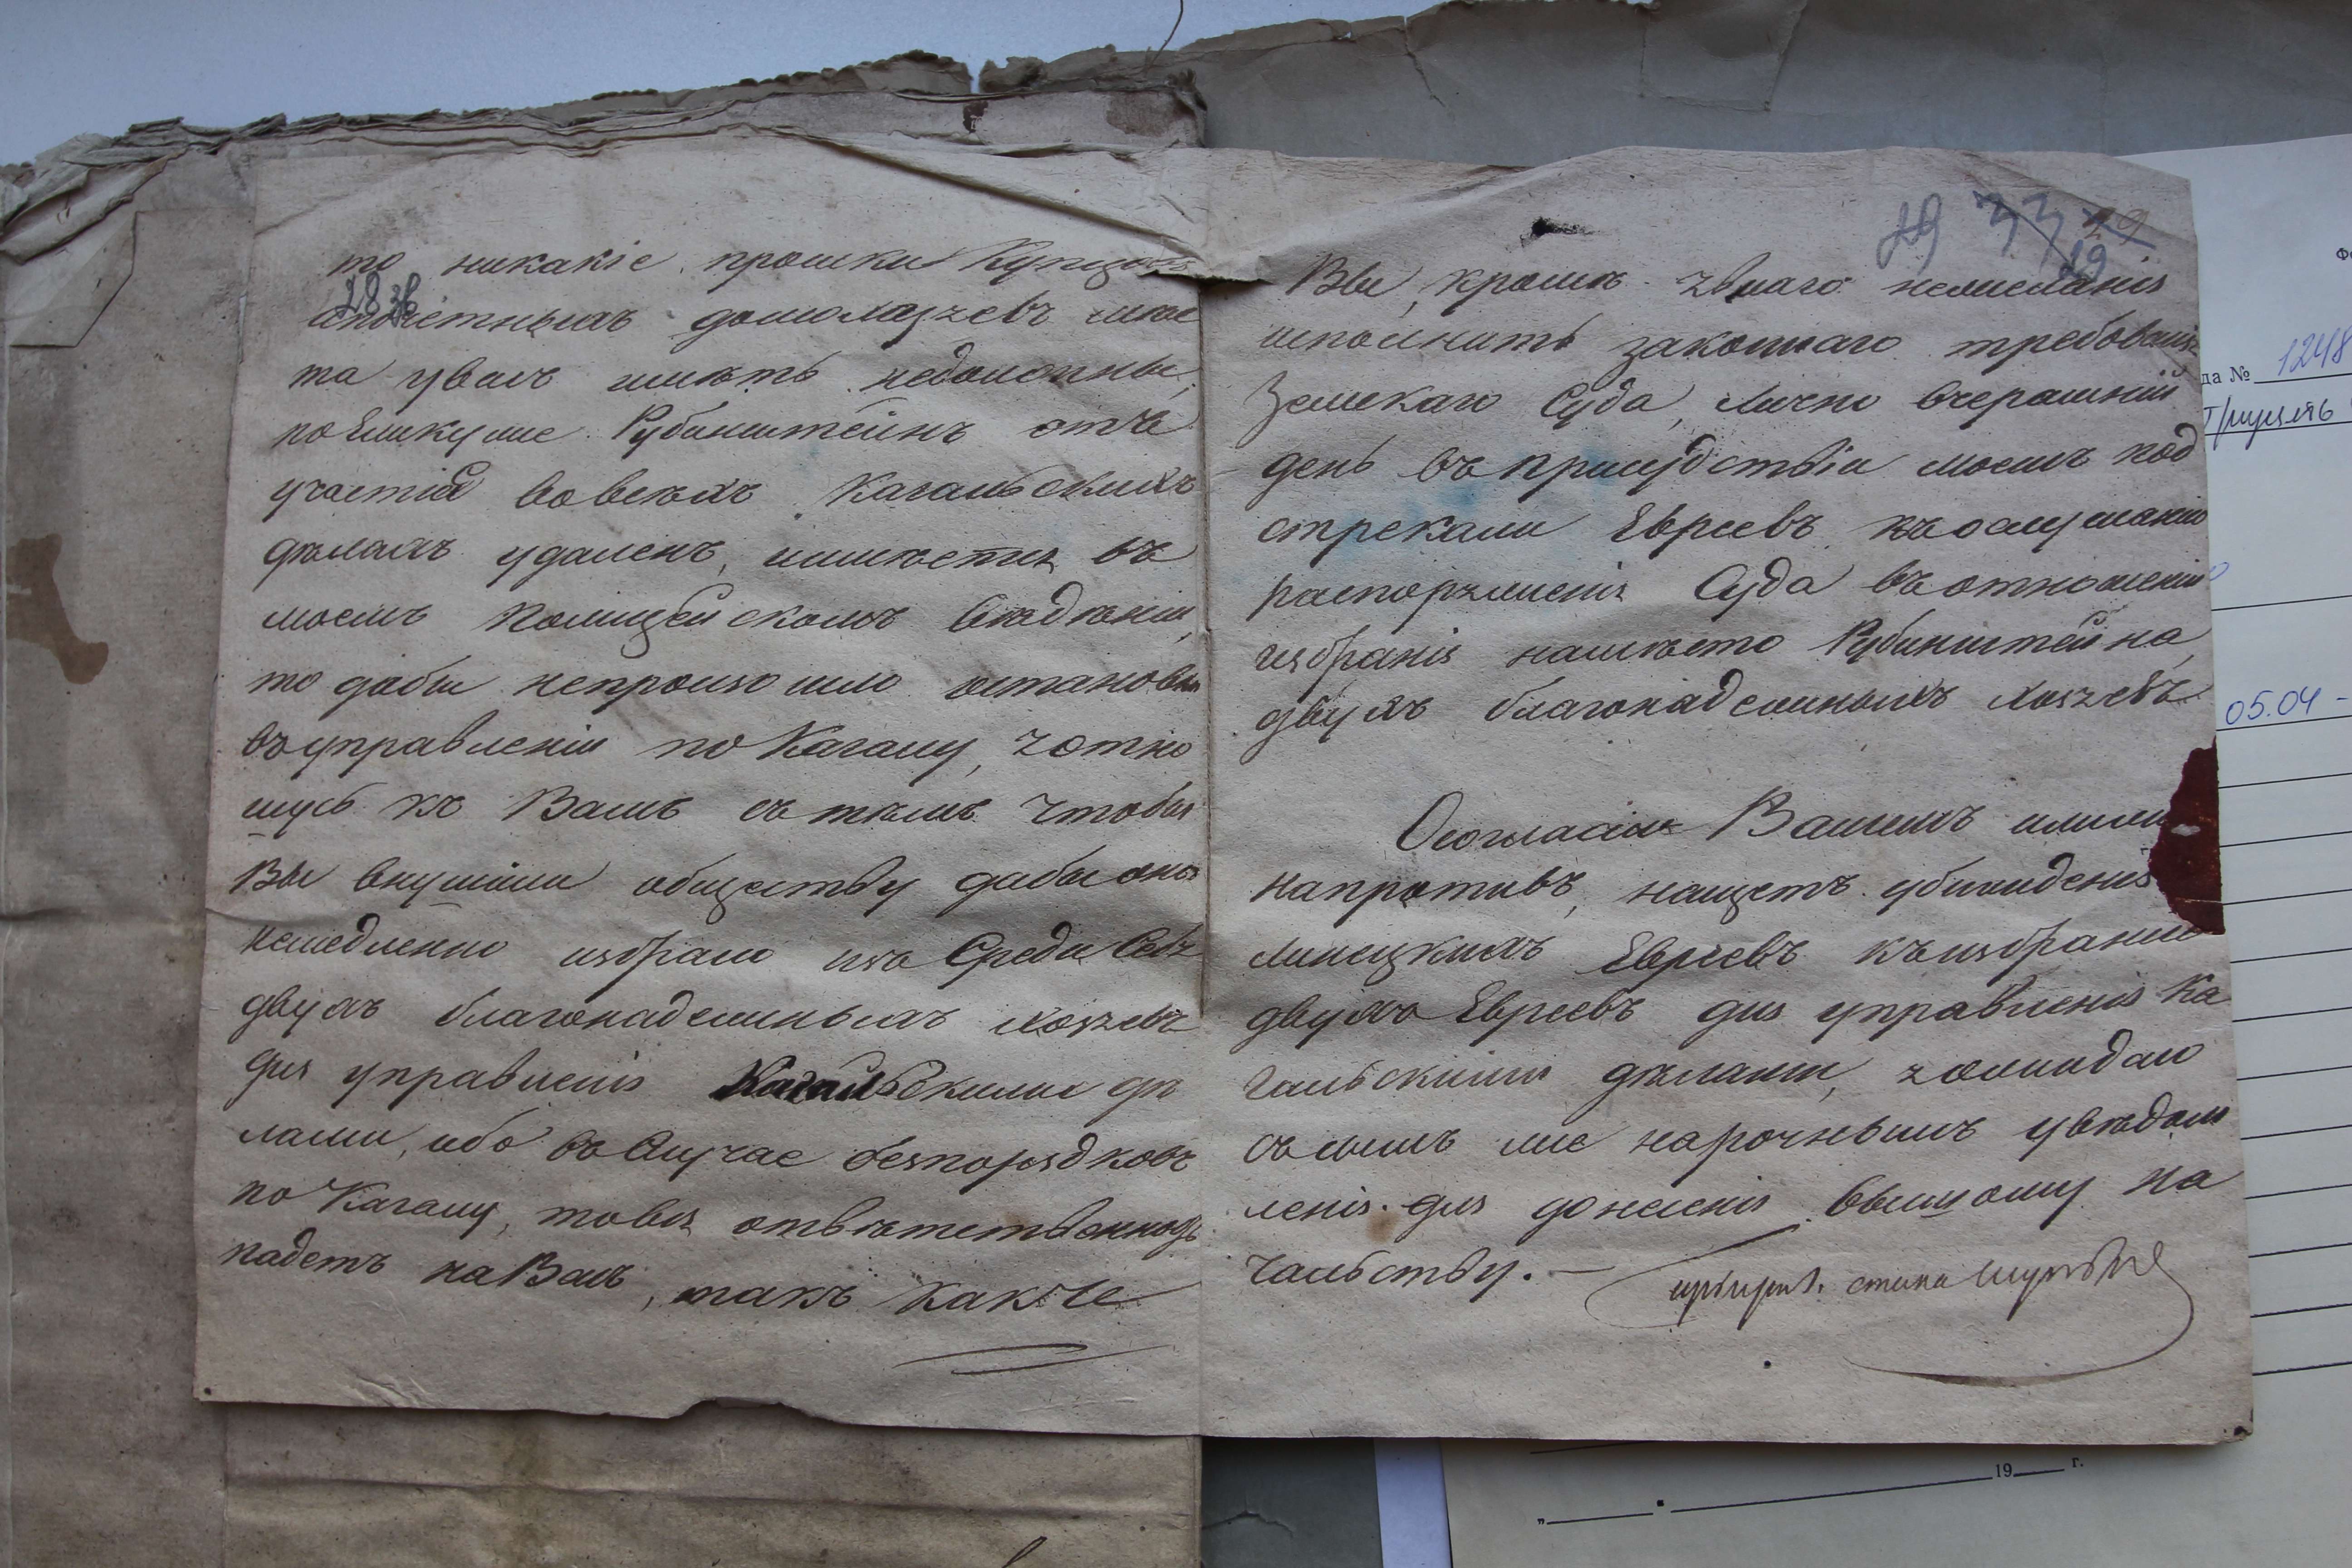 то никакіе прошки Купцовъ
28 зв
ипочетныхъ домохозяевъ мес
та увасъ имѣть недолжны,
поеликуже Рубинштейнъ отъ
участія вовсѣхъ Кагальскихъ
дѣлахъ удаленъ, иимѣется въ
моемъ Полицейскомъ вѣдѣніи,
то дабы непроизошло остановки
въуправленіи по Кагалу, яотно
шусь къ Вамъ съ тѣмъ чтобы
Вы внушили обществу дабы оно
немедленно избрало изъ Среди Себя
двухъ благонадежныхъ хозяевъ
для управленія Кагальскими дѣ
лами, ибо въ Случае безпорядковъ
по Кагалу, товся отвѣтственность
падетъ наВасъ, такъ какже
29 33 29
29
Вы, кромѣ явнаго нежеланія
исполнить законнаго требованія
Земскаго Суда, Лично вчерашній
день въ присудствіи моемъ под
стрекали Евреевъ къослушанію
распоряженія Суда въотношеніи
избранія намѣсто Рубинштейна,
двухъ благонадежныхъ хозяевъ.
Осогласіи Вашемъ илили
напротивъ, нащетъ убѣжденія
Липецкихъ Евреевъ къизбранію
двухъ Евреевъ для управленія Ка
гальскими дѣлами, яожидаю
съ симъ же нарочнымъ увѣдом
ленія для донесенія высшому На
чальству. —
да № 1248
05.04 -
19 г.